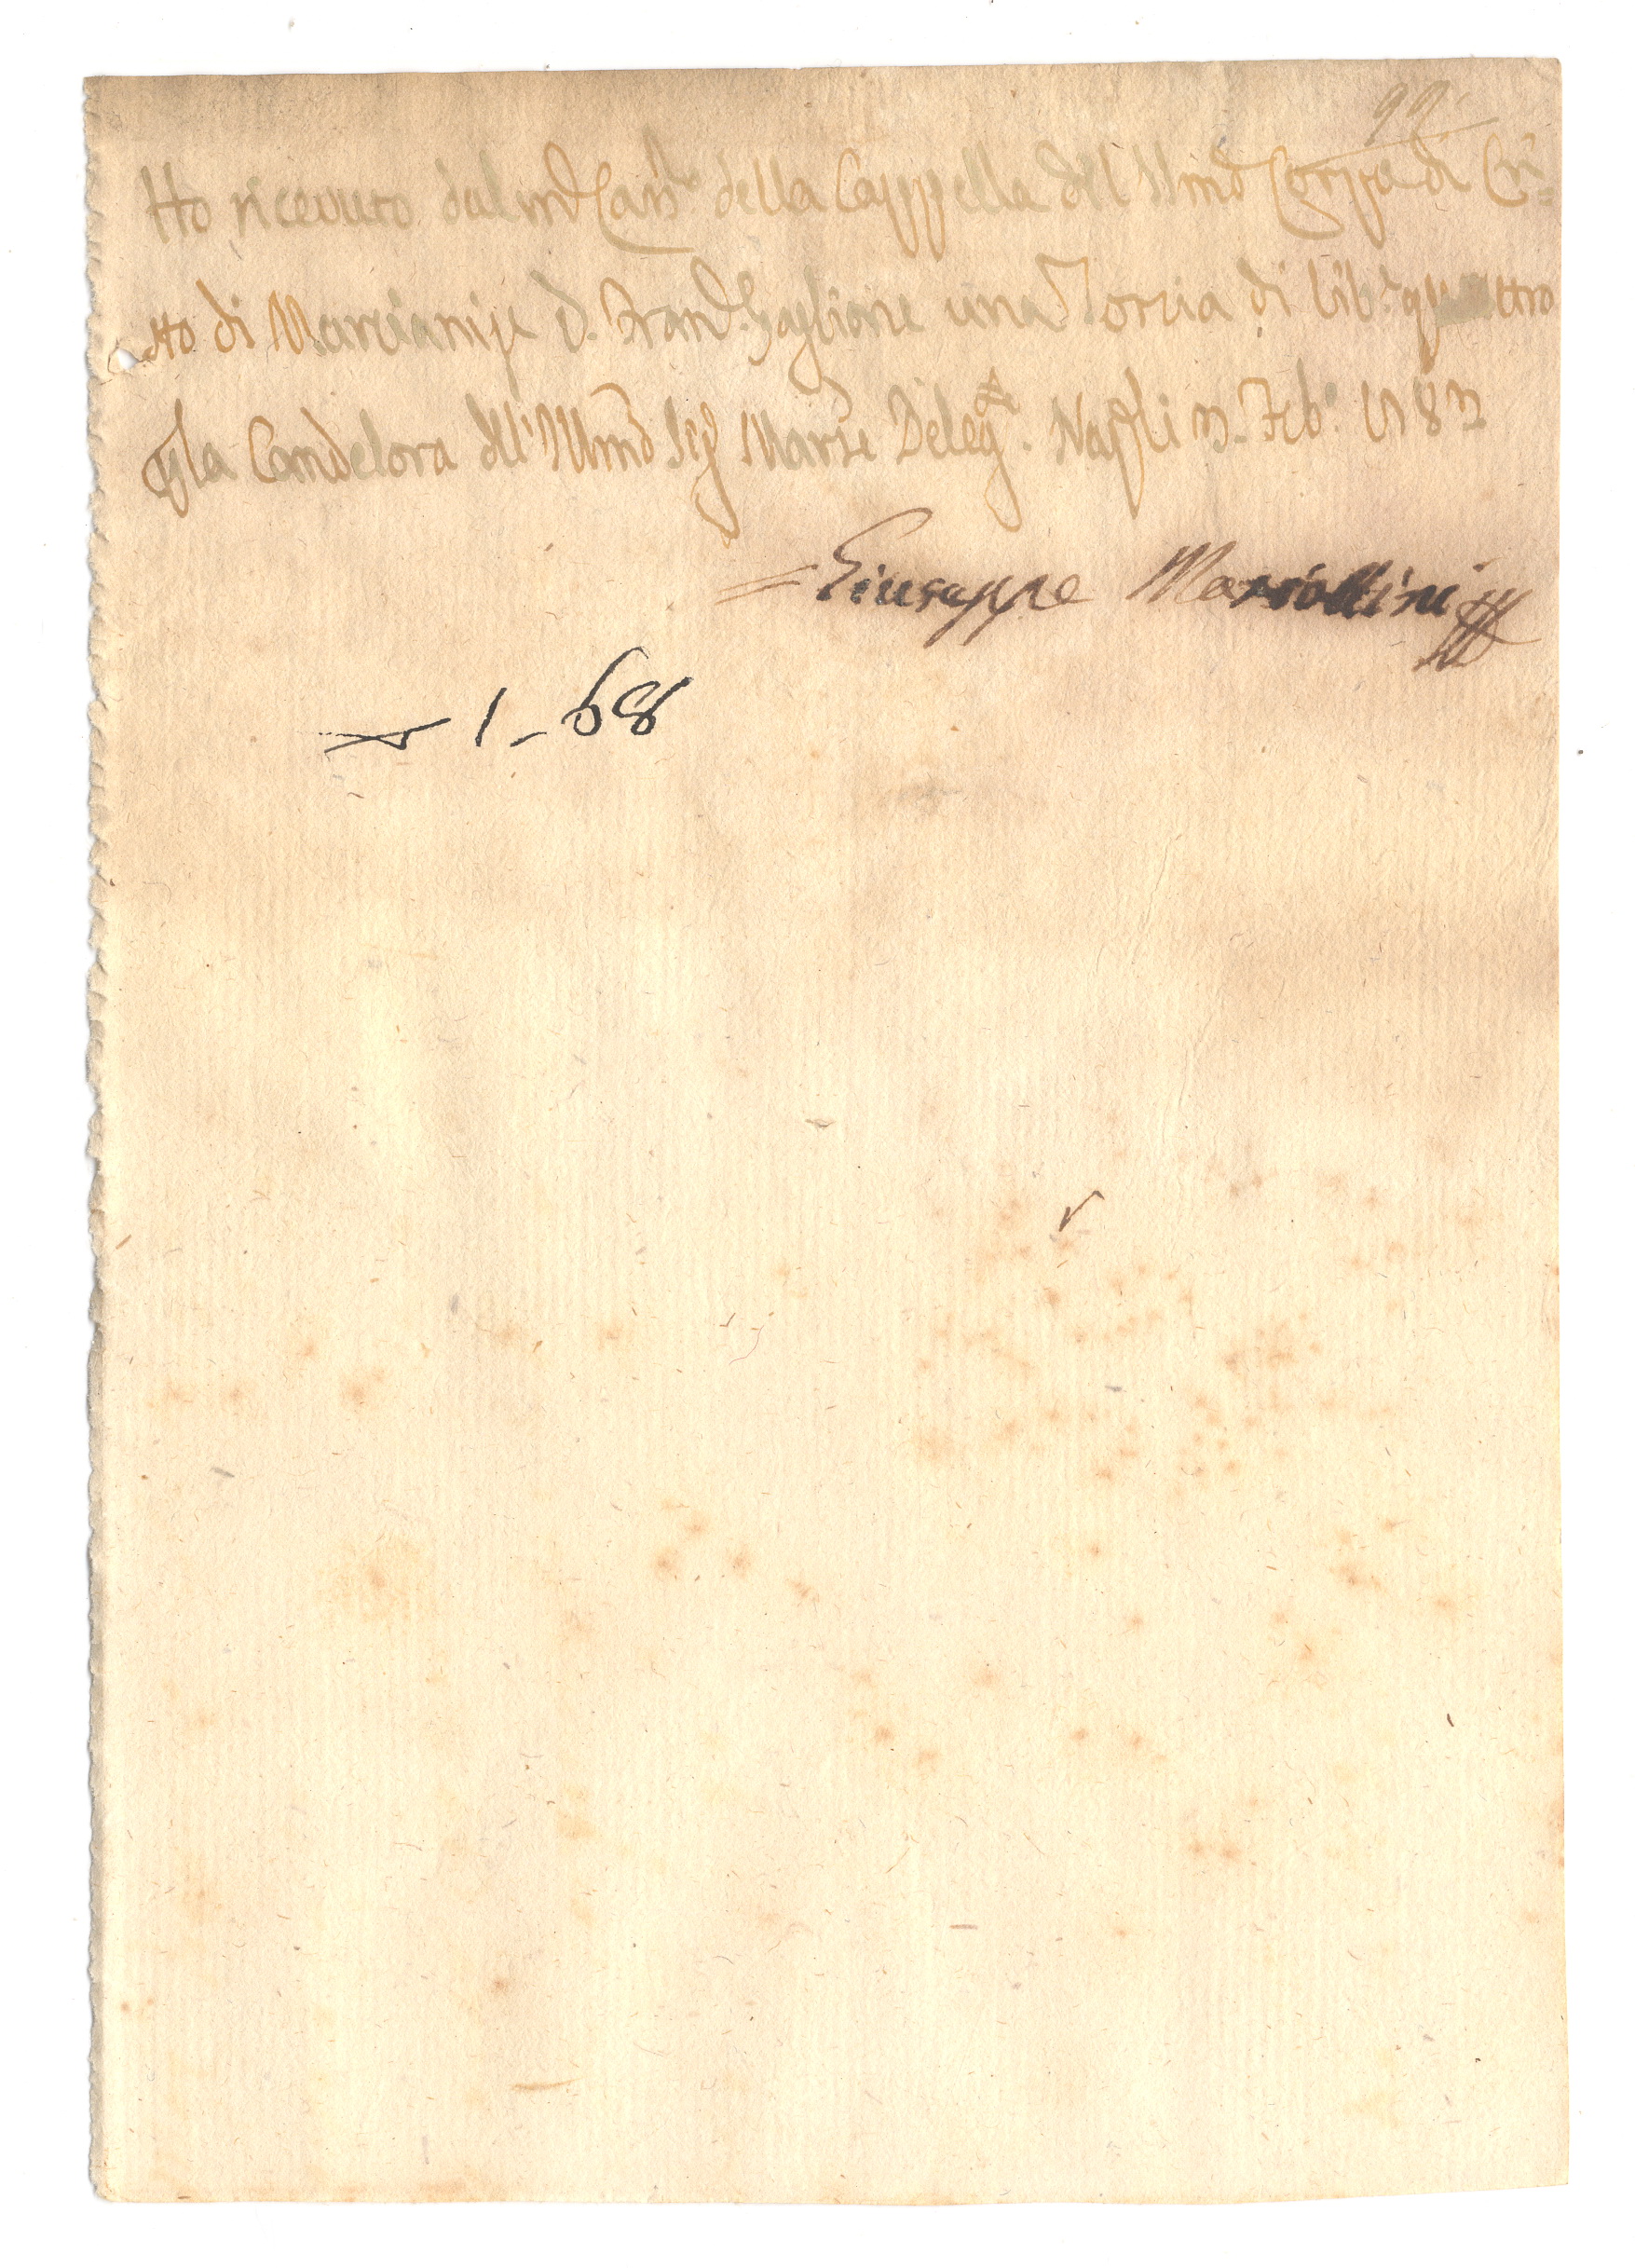 99
Ho ricevuto dal md Can.ro della Cappella dell Illmo Corpo di Cri=
sto di Marcianise D. Fran. Gaglione una Torcia di lib.e quattro
p la Candelora dell' Illmo Sig Marse Deleg.to Napli 3. Feb.o
= Giuseppe Mariottini
1-68